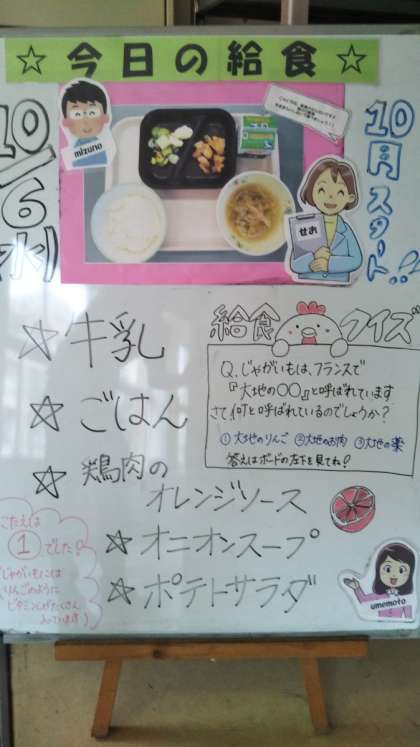 ☆今日の給食☆
mizuno
10/6(水)
10月スタート!!
せお
☆牛乳
☆ごはん
☆鶏肉の
オレンジソース
☆オニオンスープ
☆ポテトサラダ
給食クイズ
Q.じゃがいもは、フランスで
『大地の〇〇』と呼ばれています
さて、何と呼ばれているのでしょうか?
①大地のりんご ②大地のお肉 ③大地の薬
答えはボードの左下を見てね!
こたえは
①でした?
じゃがいもには
りんごのように
ビタミンCがたくさん
入っています
umemoto